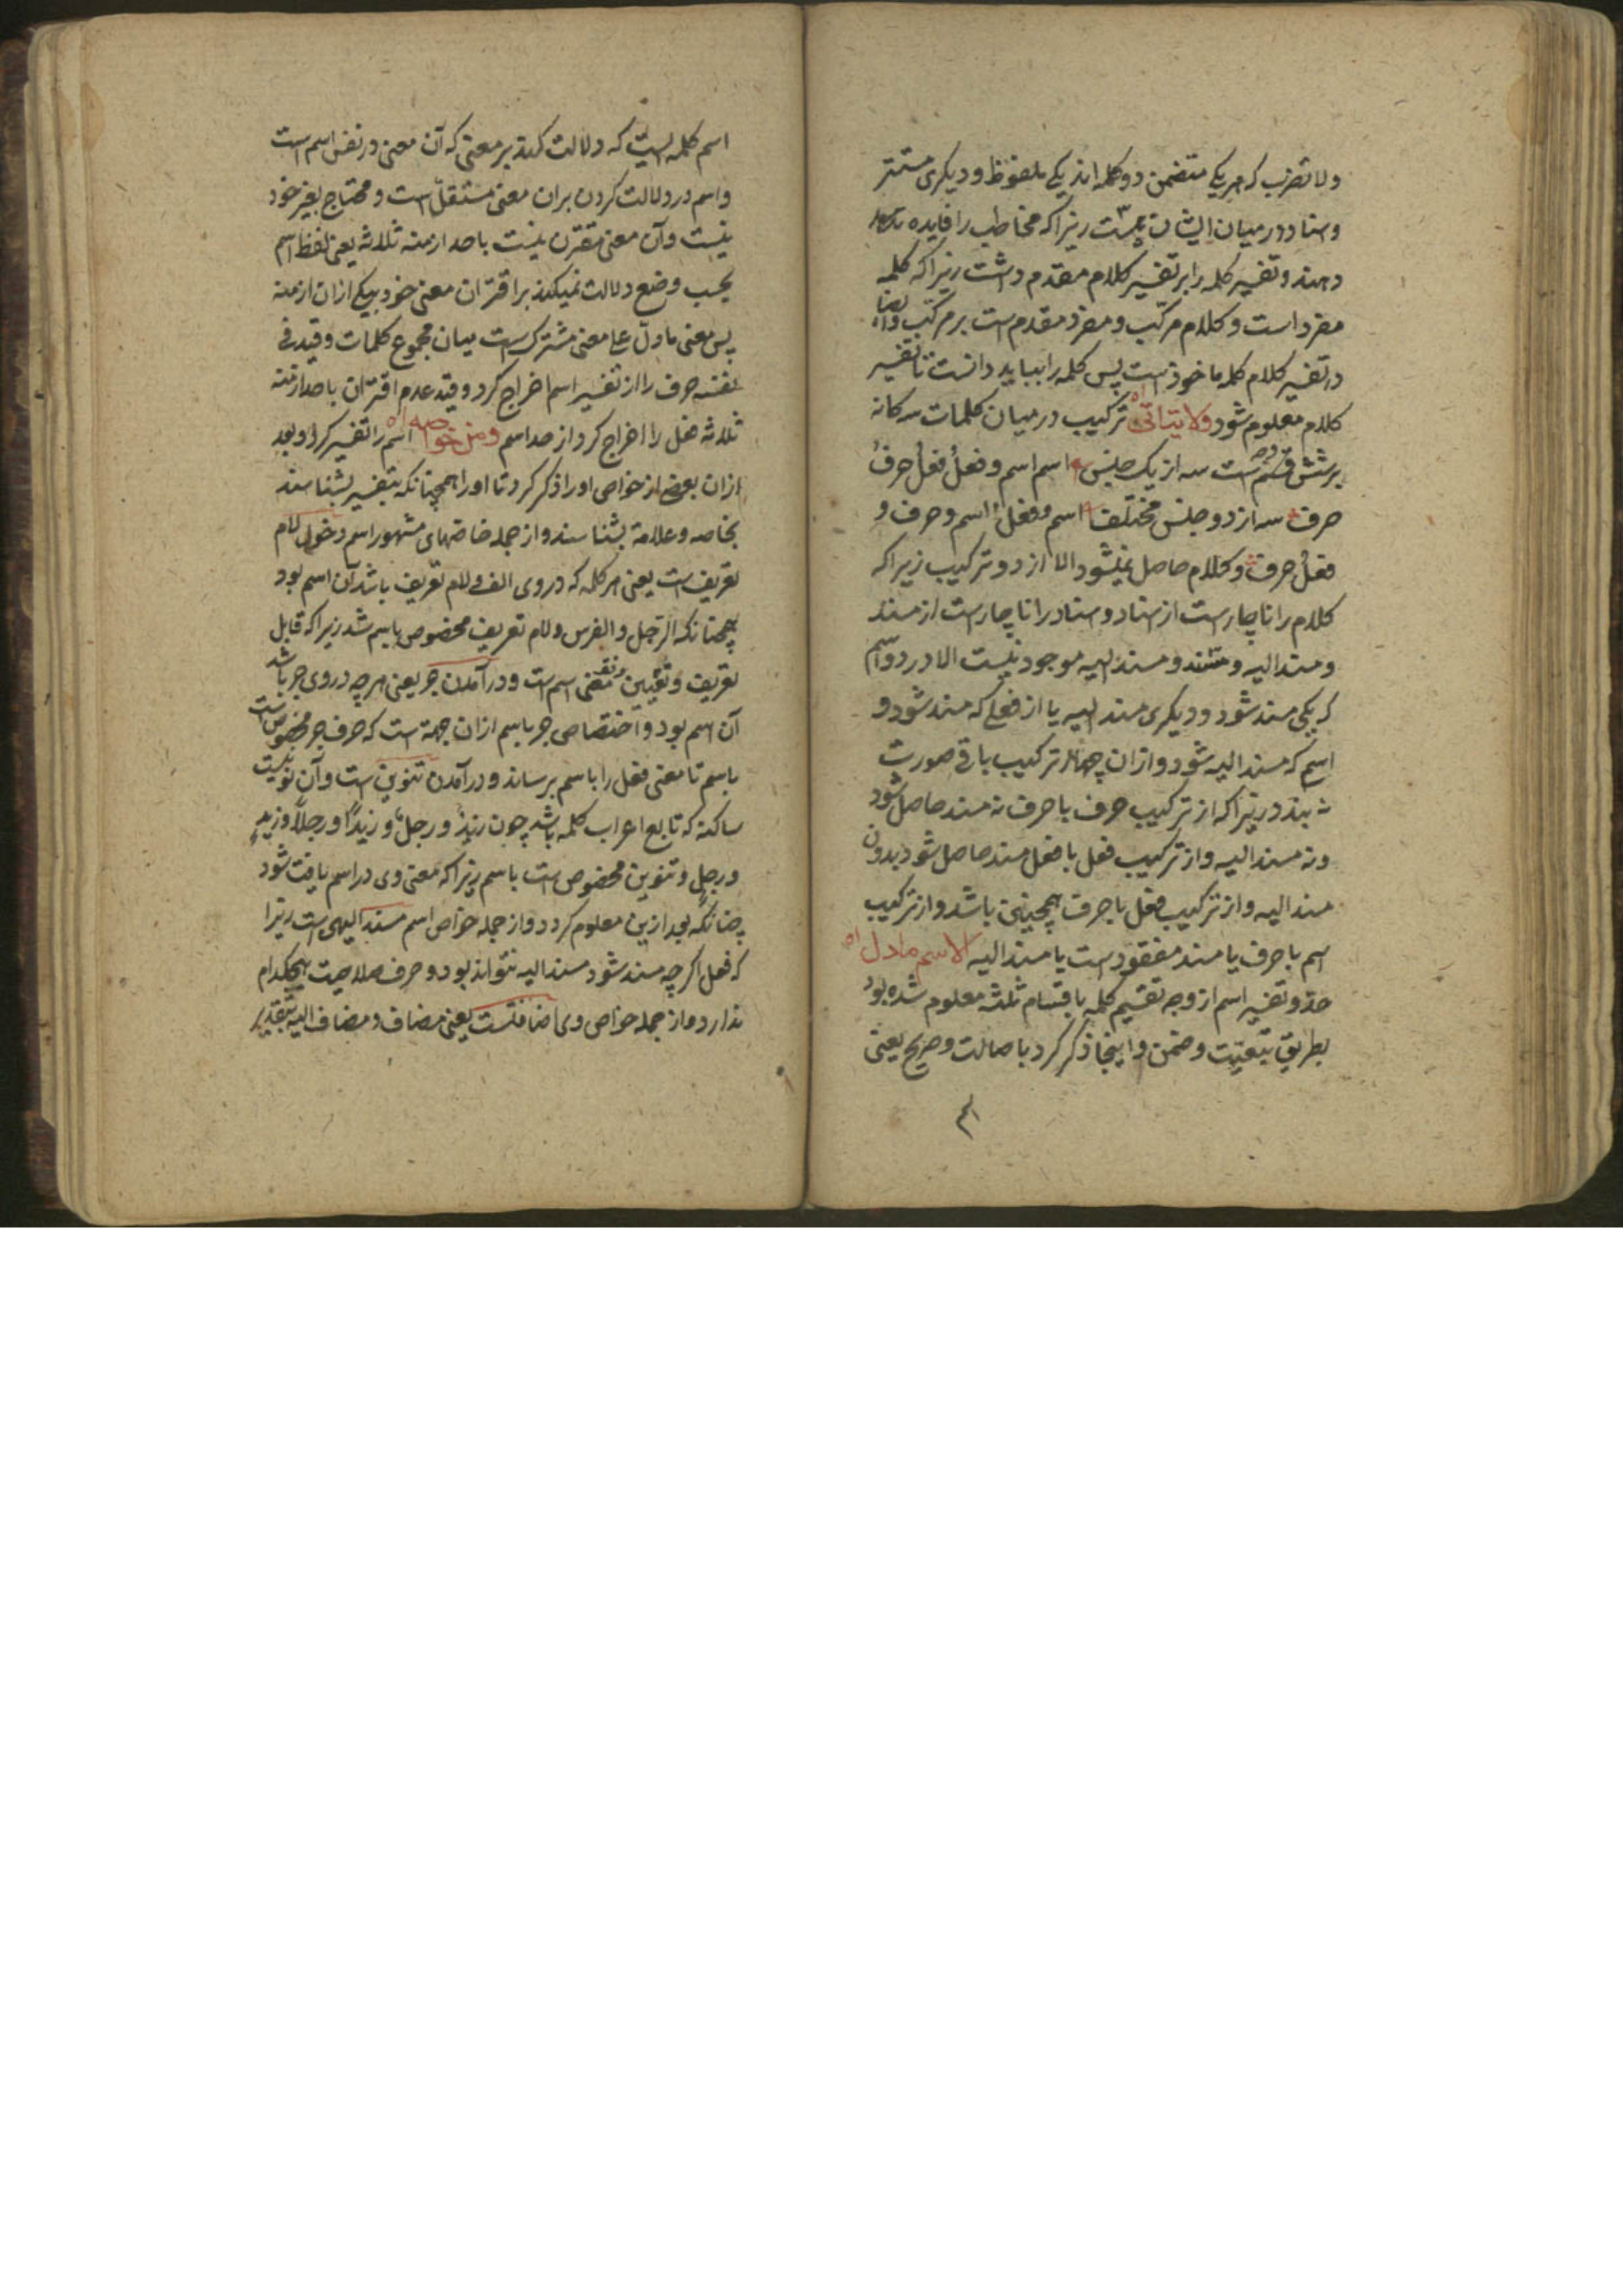 ولا تضرب که هر یکی متضمن دو کلمه‌اند یکی ملفوظ و دیکری مستتر
واسناد در میان ایشان هست زیرا که مخاطب را فایده تامه
دهند و تفسیر کلمه را بر تفسیر کلام مقدم داشت زیرا که کلمه
مفرد است و کلام مرکب و مفرد مقدم است بر مرکب وایضا
در تفسیر کلام کلمه ماخوذ است پس کلمه را بباید دانست تا تفسیر
کلام معلوم شود ولا یتاتی اه ترکیب در میان کلمات سه کانه
بر شش وجه است سه از یک جنس اسم اسم و فعل فعل حرف
حرف سه از دو جنس مختلف اسم و فعل اسم و حرف و
فعل حرف و کلام حاصل نمیشود الا از دو ترکیب زیرا که
کلام را ناچارست از اسناد و اسناد را ناچارست از مسند
و مسند الیه و مسند و مسند الیه موجود نیست الا در دو اسم
که یکی مسند شود و دیکری مسند الیه یا از فعلی که مسند شود و
اسمی که مسند الیه شود و ازان چهار ترکیب باقی صورت
نه بندد زیرا که از ترکیب حرف با حرف نه مسند حاصل شود
ونه مسند الیه و از ترکیب فعل با فعل مسند حاصل شود بدون
مسند الیه و از ترکیب فعل با حرف همچنین باشد و از ترکیب
اسم با حرف یا مسند مفقودست یا مسند الیه الاسم ما دل اه
حد و تفسیر اسم از وجه تقسیم کلمه باقسام ثلثه معلوم شده بود
بطریق تبعیت و ضمن و اینجا ذکر کرد باصالت و صریح یعنی
اسم
اسم کلمه ایست که دلالت کند بر معنی که آن معنی در نفس اسم است
واسم در دلالت کردن بران معنی مستقل است و محتاج بغیر خود
نیست و آن معنی مقترن نیست باحد ازمنه ثلاثه یعنی لفظ اسم
بحسب وضع دلالت نمیکند بر اقتران معنی خود بیکی ازان ازمنه
پس معنی ما دل علی معنی مشترک است میان مجموع کلمات و قید فی
نفسه حرف را از تفسیر اسم اخراج کرد و قید عدم اقتران باحد ازمنه
ثلاثه فعل را اخراج کرد از حد اسم ومن خواصه اه اسم را تفسیر کرد و بعد
ازان بعضی از خواص او را ذکر کرد تا او را همچنانکه بتفسیر بشناسند
بخاصه و علامة بشناسند و از جمله خاصتهای مشهور اسم دخول لام
تعریف است یعنی هر کلمه که در وی الف و لام تعریف باشد آن اسم بود
همچنانکه الرجل و الفرس و لام تعریف مخصوص باسم شد زیرا که قابل
تعریف و تعیین معنی اسم است و در آمدن جر یعنی هر چه در وی جر باشد
آن اسم بود و اختصاص جر باسم ازان جهة است که حرف جر مخصوص است
باسم تا معنی فعل را باسم برساند و در آمدن تنوین است و آن نونیست
ساکنه که تابع اعراب کلمه باشد چون زیدٌ و رجلٌ و زیداً و رجلاً و زیدٍ
و رجلٍ و تنوین مخصوص است باسم زیرا که معنی وی در اسم یافت شود
چنانکه بعد ازین معلوم کردد و از جمله خواص اسم مسند الیهی است زیرا
که فعل اکر چه مسند شود مسند الیه نتواند بود و حرف صلاحیت هیچکدام
ندارد و از جمله خواص وی اضافتست یعنی مضاف و مضاف الیه بتقدیر